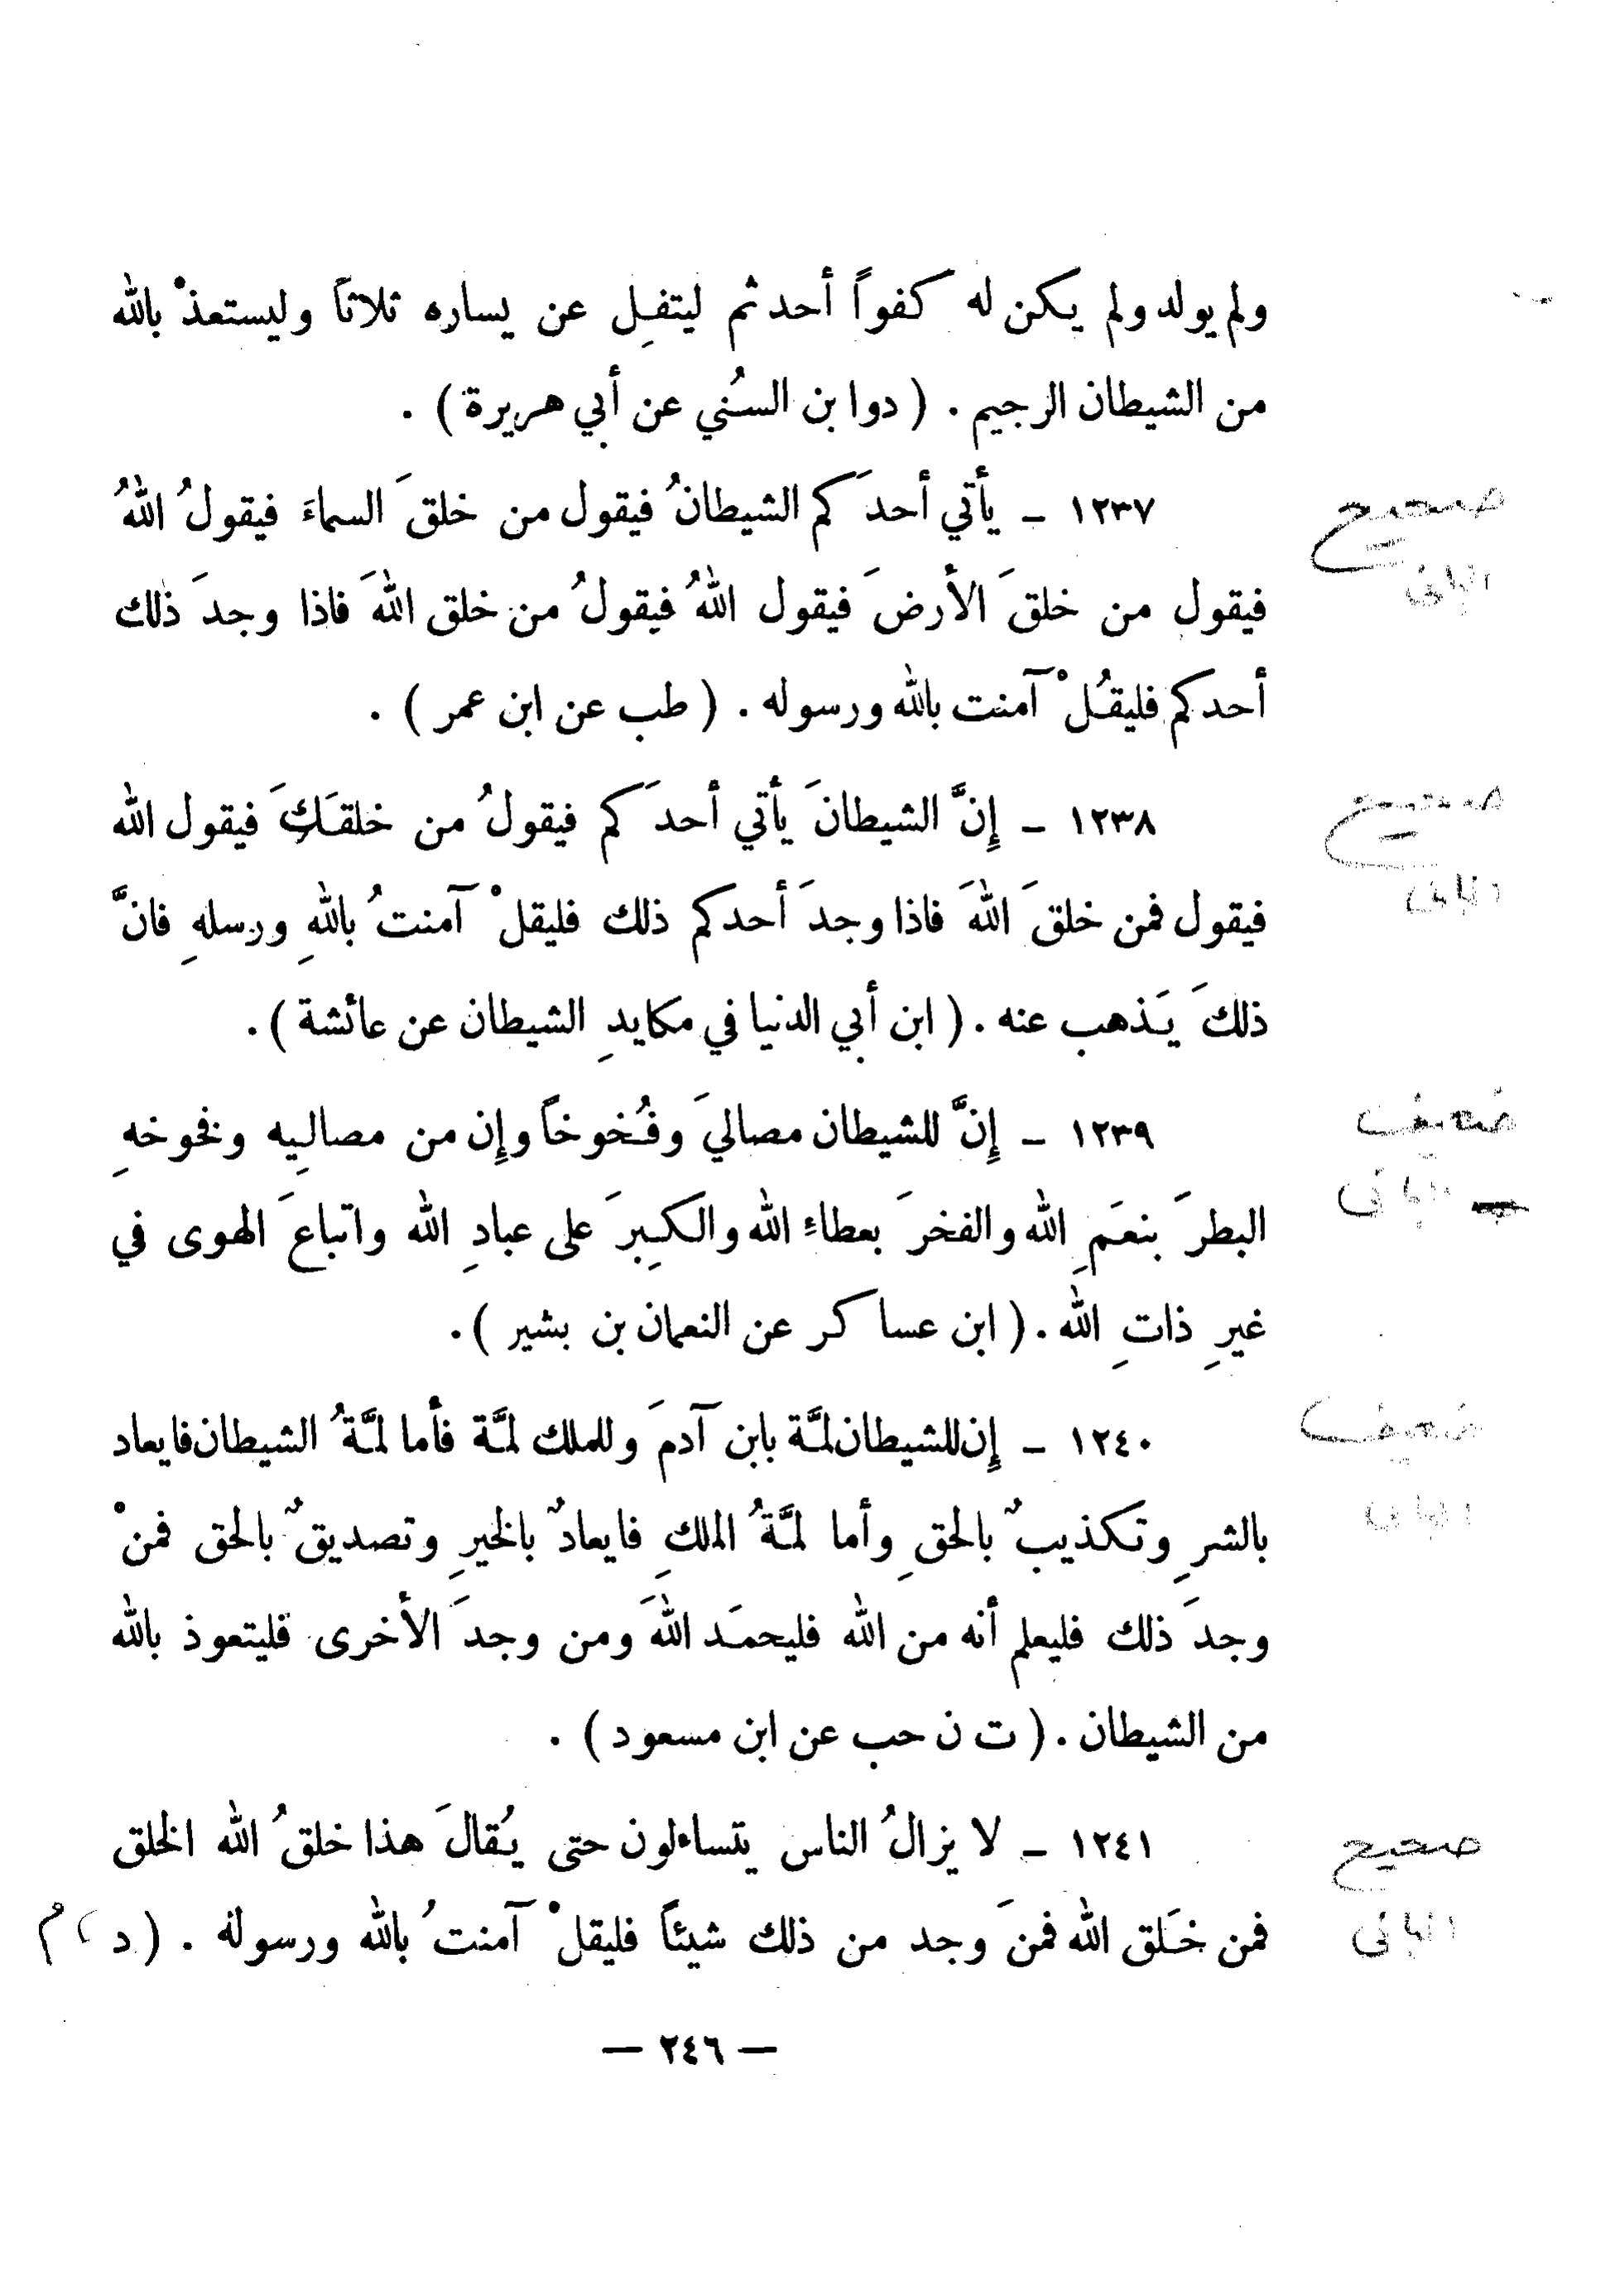 ولم يولد ولم يكن له كفواً أحد ثم ليتفِل عن يساره ثلاثاً وليستعذْ بالله
من الشيطان الرجيم . ( د وابن السُني عن أبي هريرة ) .
١٢٣٧ – يأتي أحدَكم الشيطانُ فيقول من خلقَ السماءَ فيقولُ اللهُ
صحيح
فيقول من خلقَ الأرضَ فيقول اللهُ فيقولُ من خلق اللهَ فاذا وجدَ ذلك
البانى
أحدكم فليقُلْ آمنت بالله ورسوله . ( طب عن ابن عمر ) .
١٢٣٨ – إِنَّ الشيطانَ يأتي أحدَكم فيقولُ من خلقَكَ فيقول الله
صحيح
فيقول فمن خلقَ اللهَ فاذا وجدَ أحدكم ذلك فليقلْ آمنتُ باللهِ ورسلهِ فانَّ
البانى
ذلكَ يَذهب عنه . ( ابن أبي الدنيا في مكايدِ الشيطان عن عائشة ) .
١٢٣٩ – إِنَّ للشيطان مصاليَ وفُخوخاً وإِن من مصالِيه وفخوخهِ
ضعيف
البطرَ بنعَمِ الله والفخرَ بعطاءِ الله والكِبرَ على عبادِ الله واتباعَ الهوى في
البانى
غيرِ ذاتِ الله . ( ابن عساكر عن النعمان بن بشير ) .
١٢٤٠ – إِن للشيطان لمَّة بابن آدمَ وللملك لمَّة فأما لمَّةُ الشيطان فايعاد
ضعيف
بالشرِ وتكذيبٌ بالحقِ وأما لمَّةُ الملكِ فايعادٌ بالخيرِ وتصديقٌ بالحق فمنْ
البانى
وجدَ ذلك فليعلم أنه من الله فليحمَد اللهَ ومن وجدَ الأخرى فليتعوذ بالله
من الشيطان . ( ت ن حب عن ابن مسعود ) .
١٢٤١ – لا يزالُ الناس يتساءلون حتى يُقالَ هذا خلقُ الله الخلق
صحيح
فمن خَلق الله فمنَ وجد من ذلك شيئاً فليقلْ آمنتُ بالله ورسوله . ( د ، م
البانى
— ٢٤٦ —